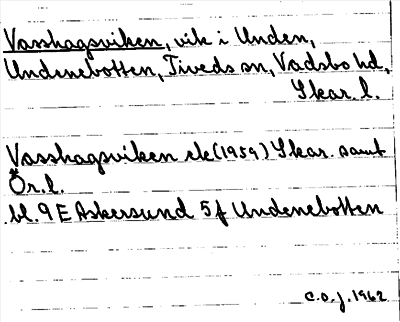 Vasshagsviken, vik i Unden,
Undenebotten, Tiveds sn, Vadsbo hd,
Skar. l.
Vasshagsviken ek (1959) Skar. samt
Ör. l.
bl. 9 E Askersund 5f Undenebotten
C.O.J. 1962